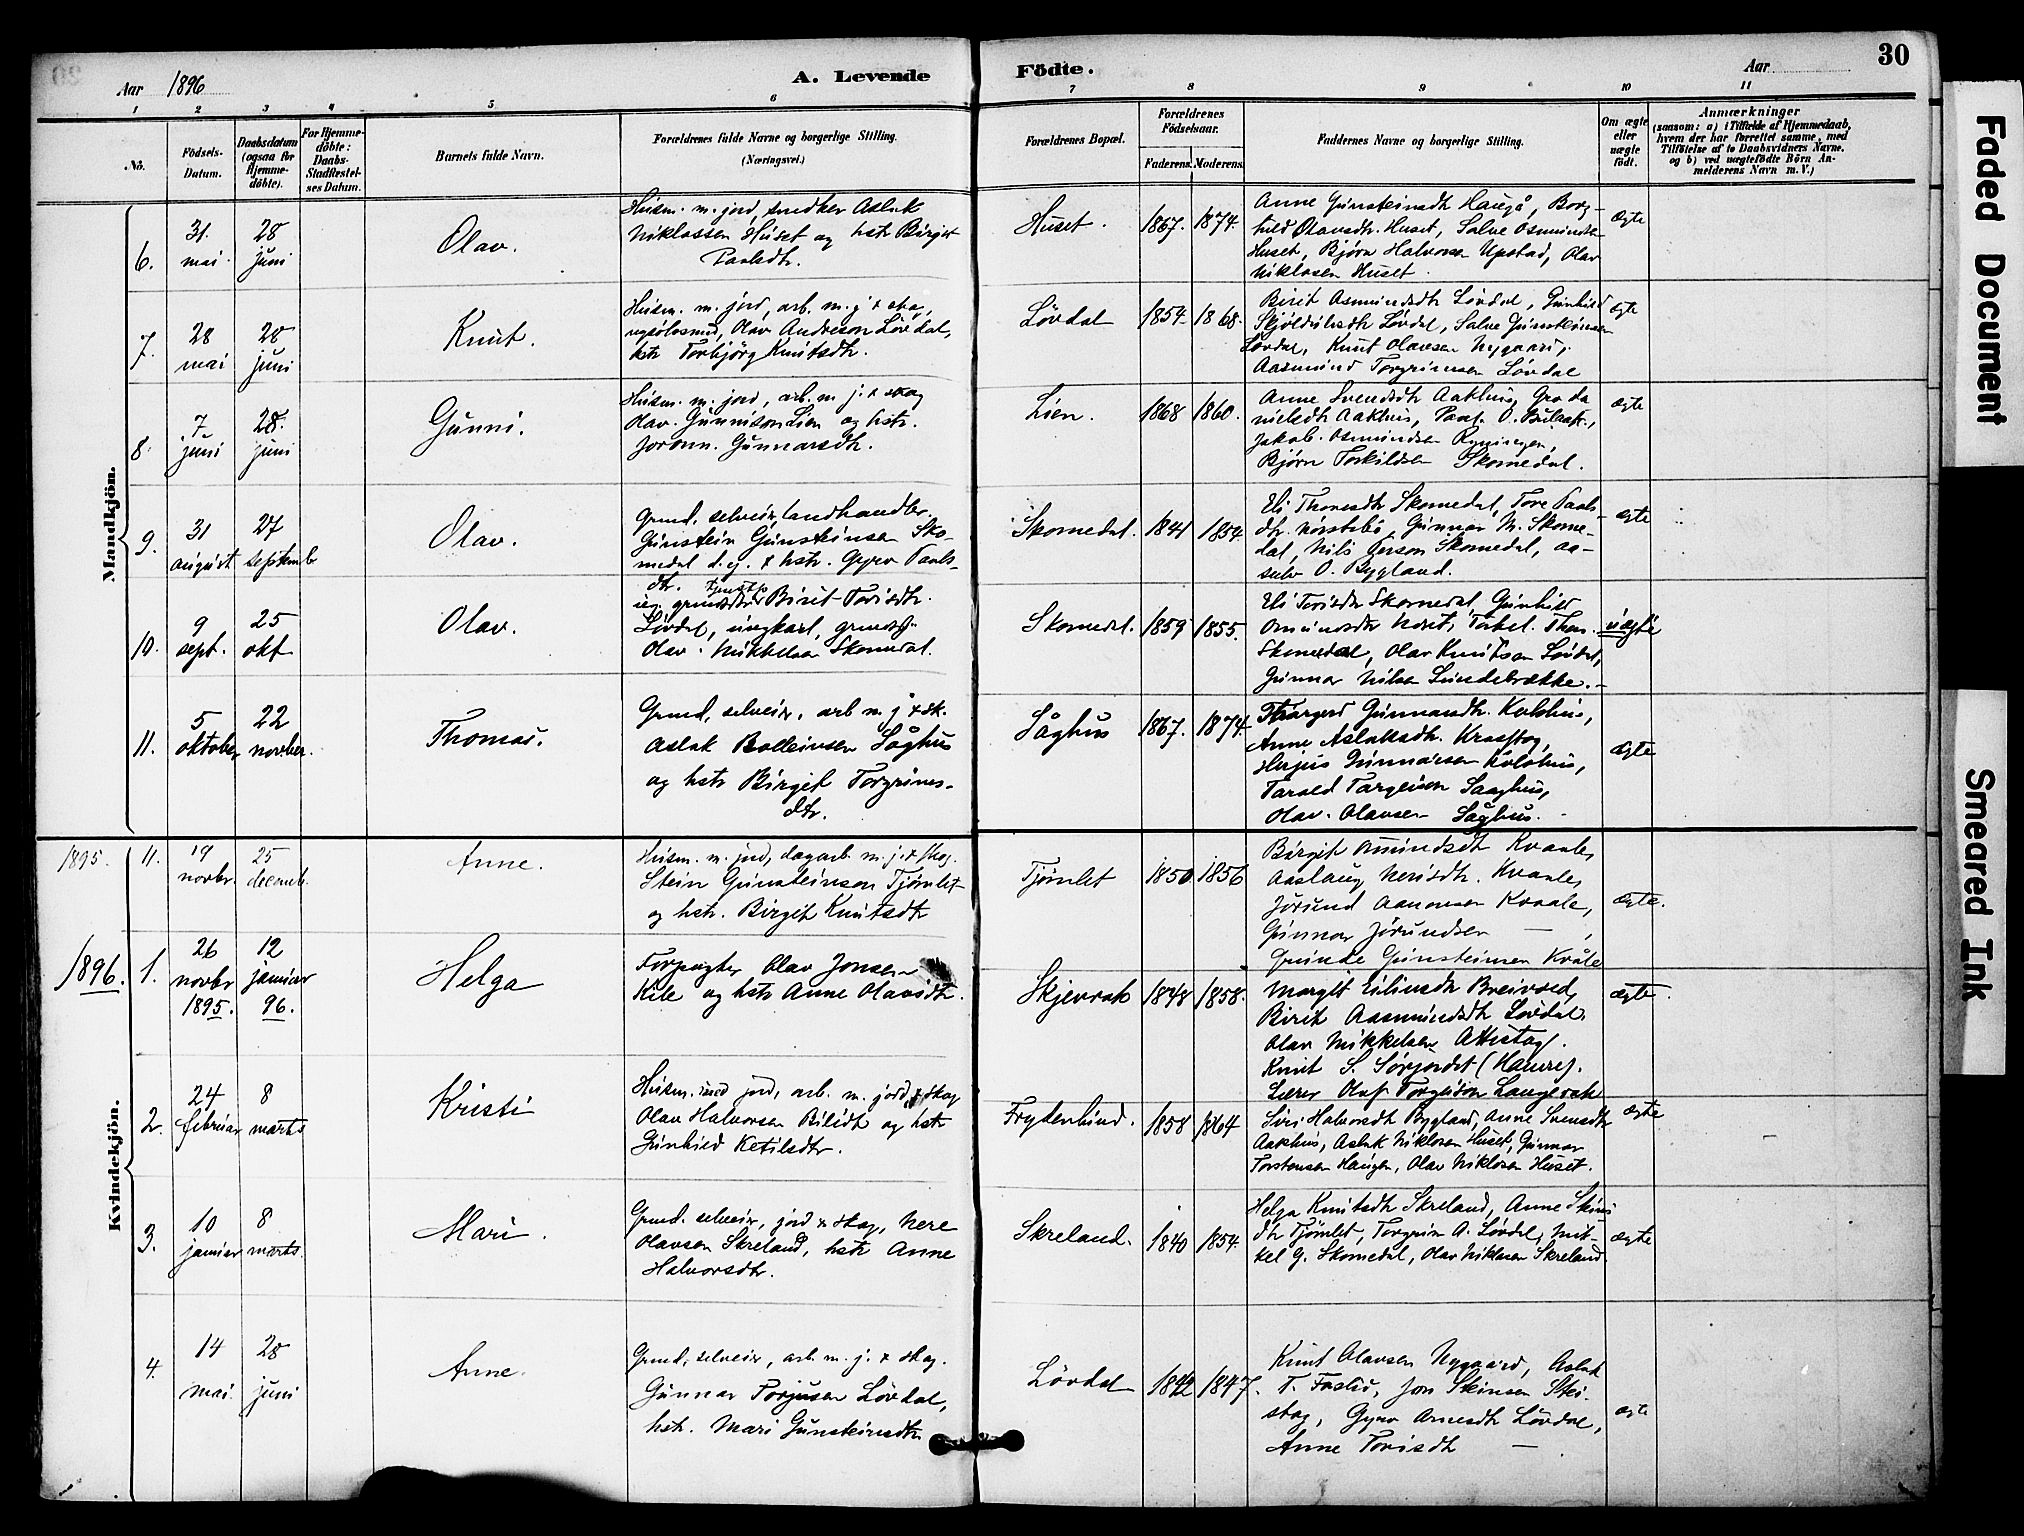 30
Aar 1896
A. Levende
Födte.
Aar
1 2 3 4 5 6 7 8 9 10 11
No.
Födsels-Datum.
Daabsdatum (ogsaa for Hjemme-döbte).
For Hjemme-döbte: Daabs-Stadfæstel-ses Datum.
Barnets fulde Navn.
Forældrenes fulde Navne og borgerlige Stilling.
(Næringsvei.)
Forældrenes Bopæl.
Forældrenes Födselsaar.
Faderens. Moderens.
Faddernes Navne og borgerlige Stilling.
Om ægte eller uægte födt.
Anmærkninger
(saasom: a) i Tilfælde af Hjemmedaab,
hvem der har forrettet samme, med
Tilföielse af to Daabsvidners Navne,
og b) ved uægtefödte Börn An-
melderens Navn m. V.)
Mandkjön.
6.
31. mai.
28 juni
Olav.
Husm. m. jord, snedker Aslak
Niklassen Huset og hstr Birget
Paalsdtr.
Huset.
1867. 1874.
Anne Gunsteinsdtr Haugå, Borg-
hild Olavsdtr. Huset, Salve Osmundsen
Huset, Bjørn Halvorsen Upstad, Olav
Niklosen Huset.
ægte
7.
28 mai
28 juni
Knut.
Husm. m. jord, arb. m. j. & skog,
Olav Andreson Lövdal,
hstr Torbjörg Knutsdtr.
Lövdal
1854. 1868.
Birit Asmundsdtr Lövdal, Gunhild
Lövdal, Salve Gunsteinsen
Lövdal, Knut Olavsen Nygaard,
Aasmund Torgrimsen Lövdal
ægte
8.
7 juni
28. juni
Gunni.
Husm. m. jord, arb. m j. & skog
Olav Gunnison Lien og hstr.
Joronn Gunnarsdtr.
Lien.
1868 1860.
Anne Svendsdtr Aakhus, Gro Da
nielsdtr Aakhus, Paal O.
Jakob Osmundsen Rysningen,
Bjørn Torkildsen Skomedal.
ægte
9.
31 august
27 septemb
Olav.
Grund, selveier, landhandler
Gunstein Gunsteinsen Sko-
medal d. ej. & hstr. Gyro Paals-
dtr.
Skomedal.
1841 1854.
Eli Thomsdtr Skomedal, Tore Paals-
dtr. Norstebø, Gunnar N. Skome-
dal, Nils Gerson Skomedal, As-
sulv O. Bygland.
ægte
10.
9 sept.
25 okt
Olav.
Birit Torisdtr.
Lövdal, ungkarl,
Olav Mikkelsen Skomedal.
Skomedal.
1859 1855.
Eli Torisdtr Skomedal, Gunhild
Omundsdtr Torkel Thom.
Skomedal, Olav Knutsen Lövdal,
Gunnar Nilsen Lundebrække.
uægte
11.
5 oktober
22 novber.
Thomas.
Grund, selveier, arb m. j & sk.
Aslak Bolleivsen Såghus
og hstr Birgit Torgrims-
dtr.
Såghus
1867. 1874.
Gunnarsdtr. Kolshus,
Anne Aslaksdtr.
Herjus Gunnarsen Kolshus,
Tarald Targeison Saaghus,
Olav Olavsen Såghus.
ægte
Kvindekjön.
1895.
11.
19 novbr.
25 decemb.
Anne.
Husm. m. jord, dagarb. m. j. & skog.
Stein Gunsteinson Tjömlet
og hstr. Birgit Knutsdtr
Tjömlet
1850 1856
Birgit Omundsdt Kvaale,
Aaslaug Nerisdtr. Kvaale,
Jørund Aanonsen Kvaale,
Gunnar Jørundsen —,
Gunde Gunsteinsen Kvåle
ægte.
1896.
1.
26 novbr 1895.
12 januar 96.
Helga
Forpagter Olav Jonsen
Kile og hstr Anne Olavsdtr.
Skjevrak
1848 1858.
Margit Eilivsdtr Breivoed,
Birit Aasmundsdtr Lövdal
Olav Mikkelsen Attestog.
Knut S. Sørjordet (Haure).
Lærer Olaf Torgeison Langerak
ægte.
2.
24 februar
8 marts
Kristi
Husm. med jord, arb. m. jord & skog
Olav Halvorsen Bilidt og hstr
Gunhild Ketilsdtr.
Frydenlund.
1858 1864
Siri Halvorsdtr Bygland, Anne Svensdtr
Aakhus, Aslak Niklosen Huset, Gunnar
Torstensen Haugen, Olav Niklosen Huset.
ægte
3.
10 januar
8 marts.
Mari.
Grund. selveier, jord & skog, Nere
Olavsen Skreland, hstr Anne
Halvorsdtr.
Skreland.
1840 1854.
Helga Knutsdtr Skreland, Anne Steins
dtr Tjömlet, Torgrim A. Lövdal, Mik-
kel G. Skomedal, Olav Niklosen Skreland.
ægte
4.
14 mai.
28 juni
Anne.
Grund, selveier, arb. m. j. & skog.
Gunnar Torjusen Lövdal,
hstr. Mari Gunsteinsdtr
Lövdal
1842 1847.
Knut Olavsen Nygaard, Aslak
T. Jon Steinsen Stei-
stog, Gyro Arnesdtr Lövdal,
Anne Torisdtr —
ægte
Faded Document
Smeared Ink